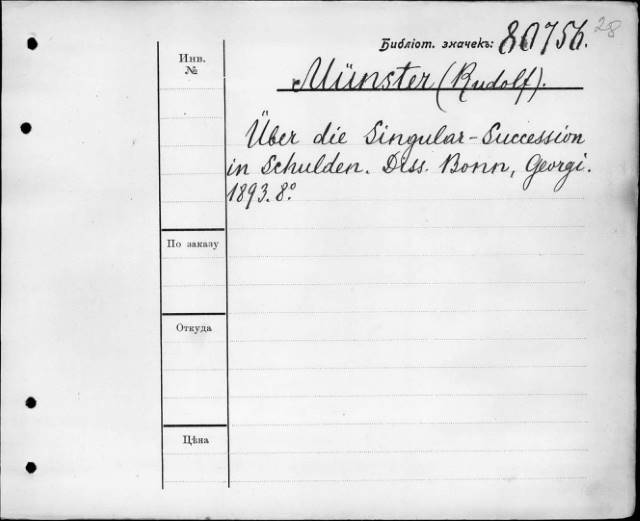 28
Библіот. значекъ: 80756.
Инв.
№
Münster (Rudolf).
Über die Singular-Succession
in Schulden. Diss. Bonn, Georgi.
1893. 8º
По заказу
Откуда
Цѣна